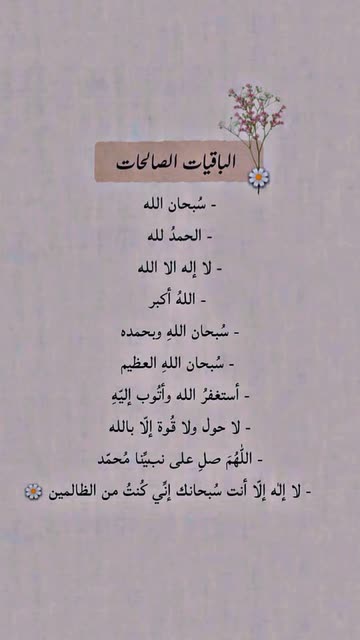 الباقيات الصالحات
- سُبحان الله
- الحمدُ لله
- لا إله الا الله
- اللهُ أكبر
- سُبحان اللهِ وبحمده
- سُبحان اللهِ العظيم
- أستغفرُ الله وأتُوب إليّهِ
- لا حول ولا قُوة إلّا بالله
- اللّٰهُمَ صلِ على نبيِّنا مُحمّد
- لا إلٰه إلّا أنت سُبحانك إنِّي كُنتُ من الظالمين